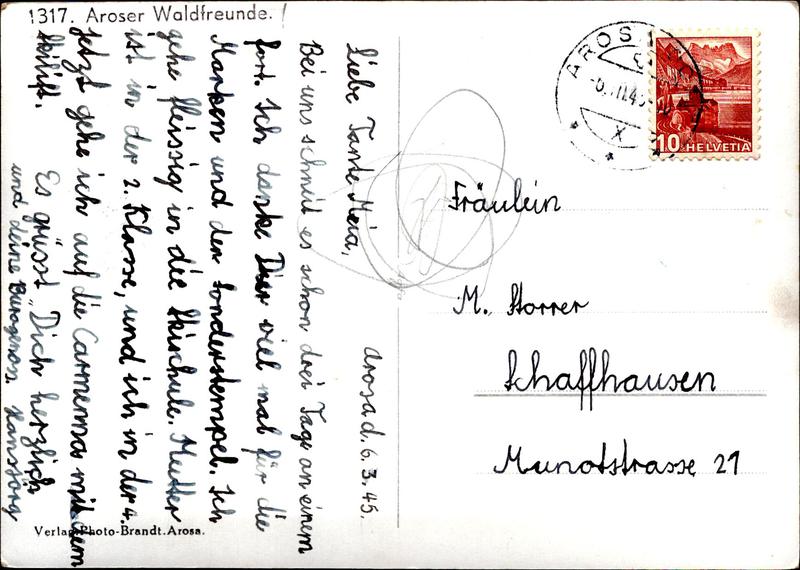 1317. Aroser Waldfreunde.
Arosa d. 6.3.45.
Liebe Tante Meia,
Bei uns schneit es schon drei Tage an einem
fort. Ich danke Dir viel mal für die
Marken und den Sonderstempel. Ich
gehe fleissig in die Skischule. Mutter
ist in der 2. Klasse, und ich in der 4.
Jetzt gehe ich auf die Carmenna mit dem
Skilift.
Es grüsst Dich herzlich
und deine Bürogenoss. Hansjörg
Verlag Photo-Brandt. Arosa.
AROSA
HELVETIA
10
Fräulein
M. Storrer
Schaffhausen
Munotstrasse 21